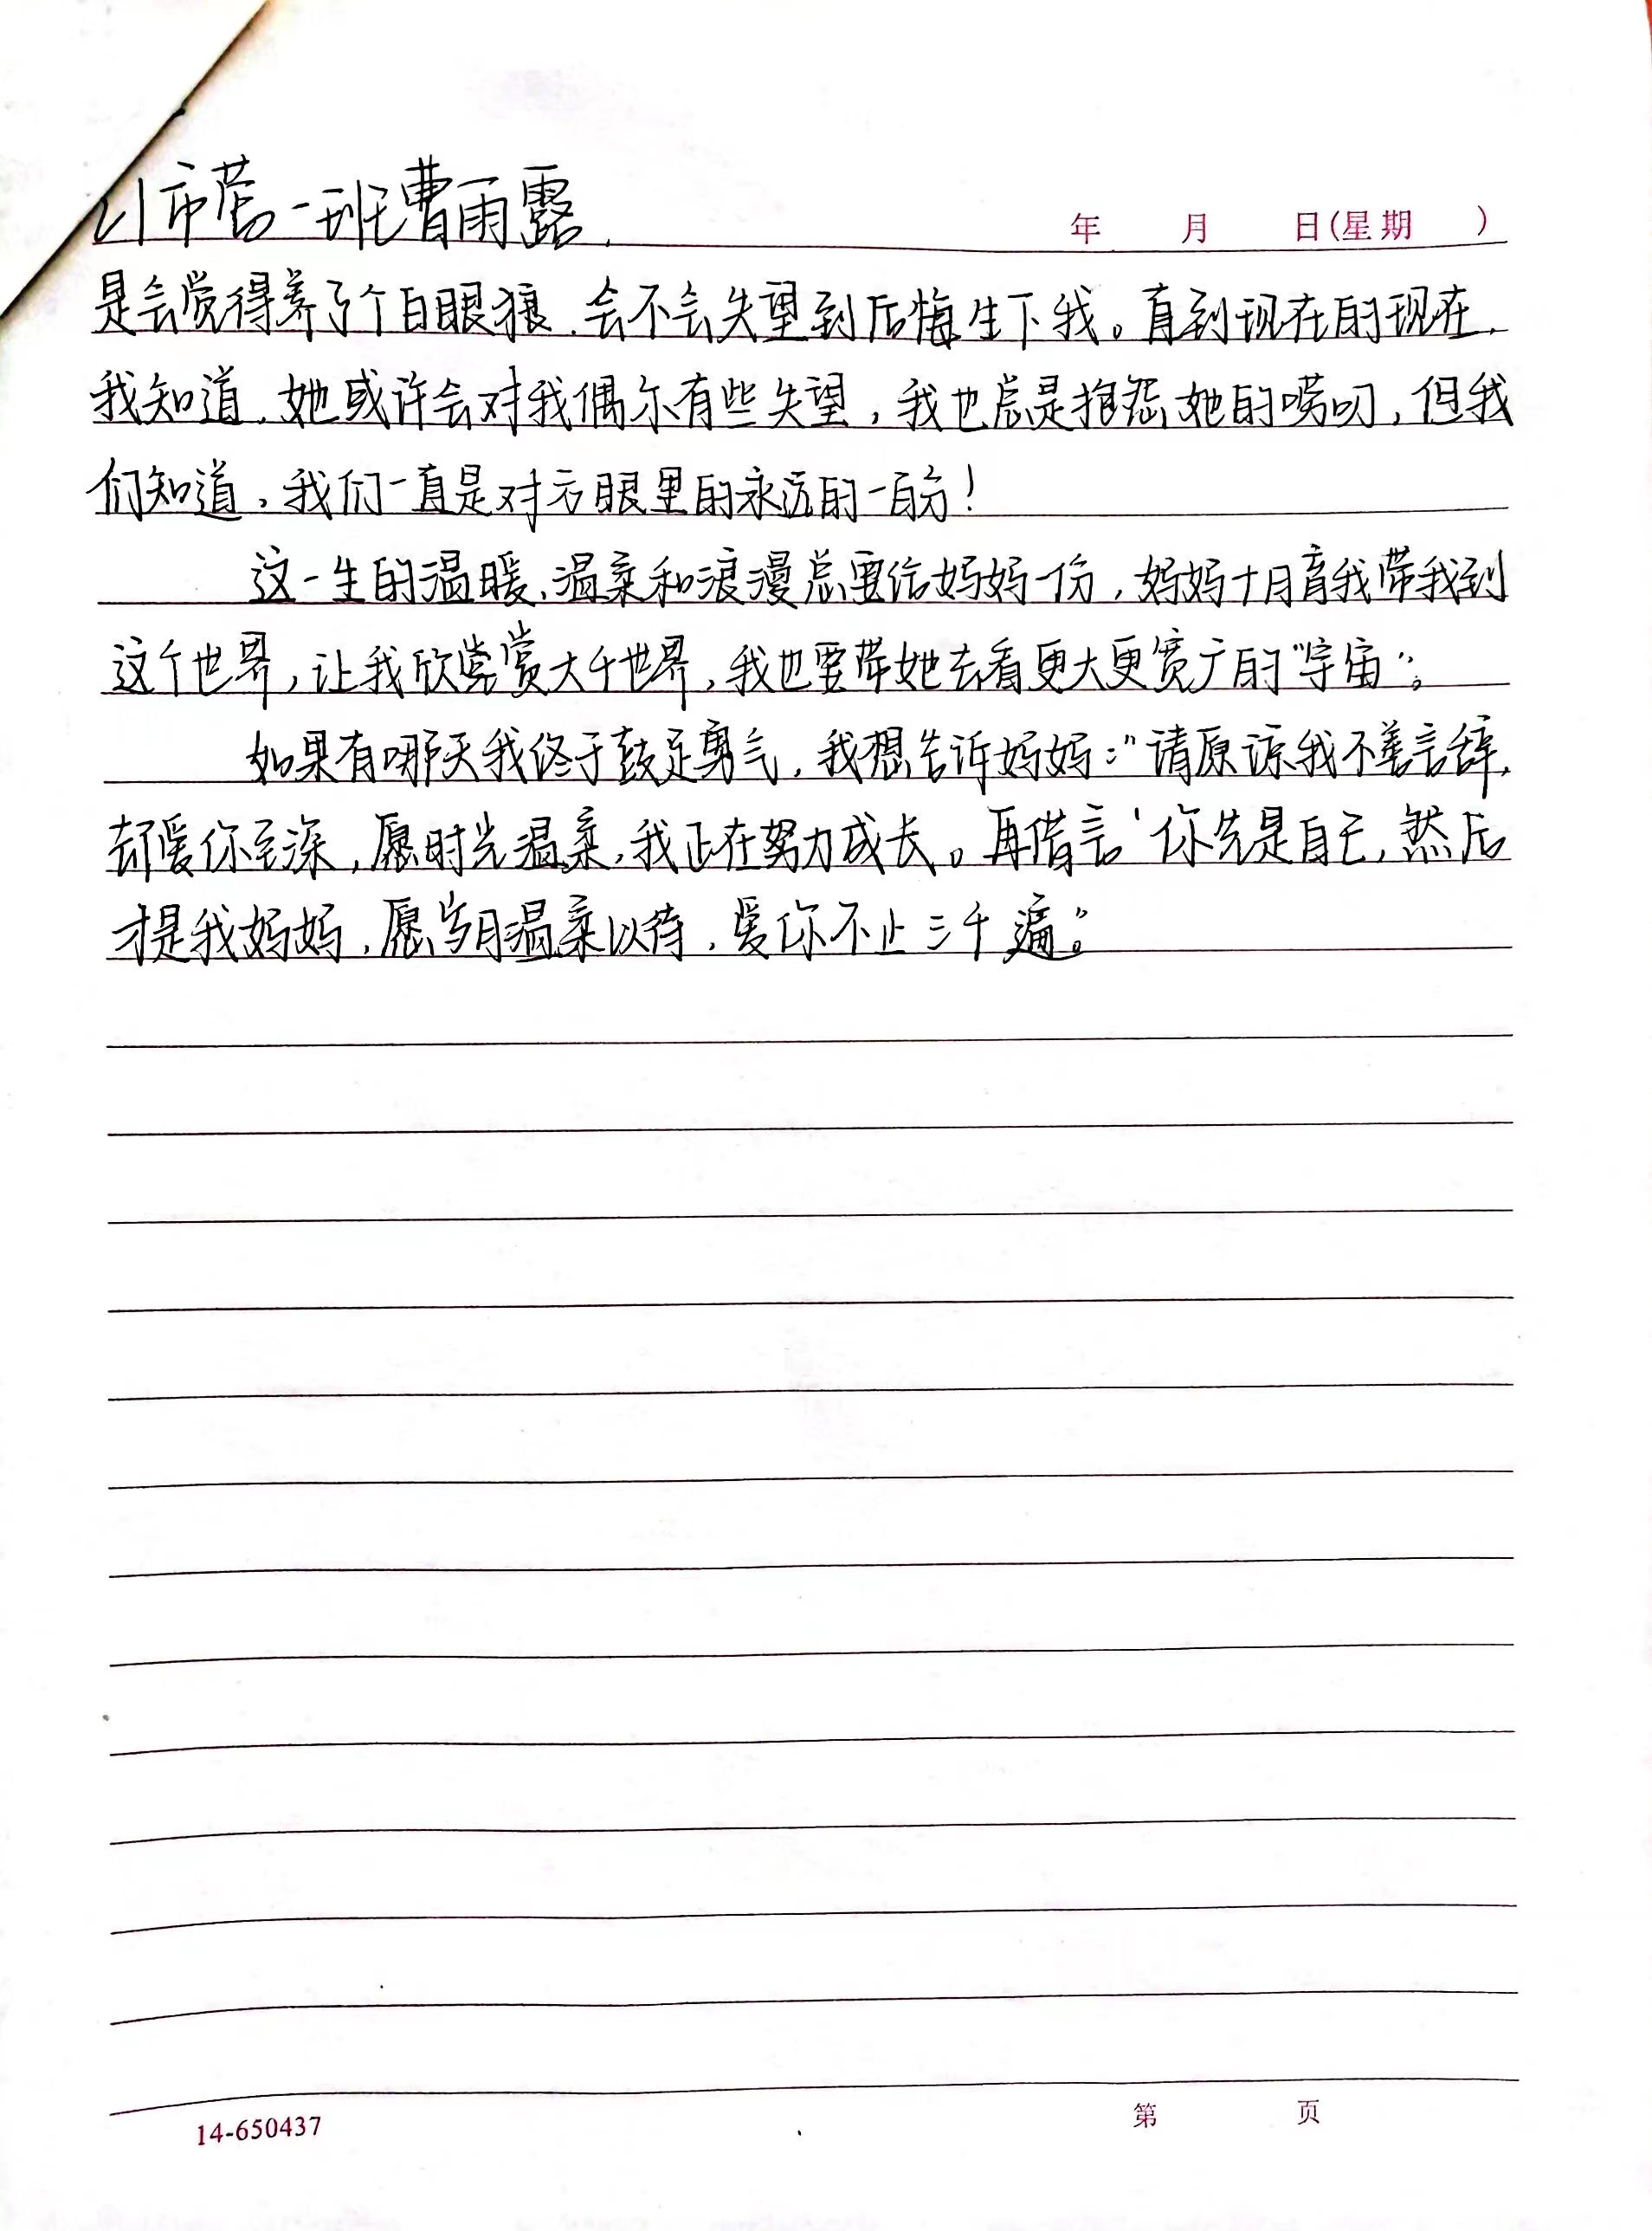 21市营一班曹雨露
年 月 日(星期 )
是会觉得养了个白眼狼,会不会失望到后悔生下我。直到现在的现在,
我知道,她或许会对我偶尔有些失望,我也总是抱怨她的唠叨,但我
们知道,我们一直是对方眼里的永远的一百分!
这一生的温暖、温柔和浪漫总要给妈妈一份,妈妈十月育我带我到
这个世界,让我欣赏大千世界,我也要带她去看更大更宽广的“宇宙”。
如果有哪天我终于鼓足勇气,我想告诉妈妈:“请原谅我不善言辞,
却爱你至深,愿时光温柔,我正在努力成长。再借言‘你先是自己,然后
才是我妈妈,愿岁月温柔以待,爱你不止三千遍。”
14-650437
第 页